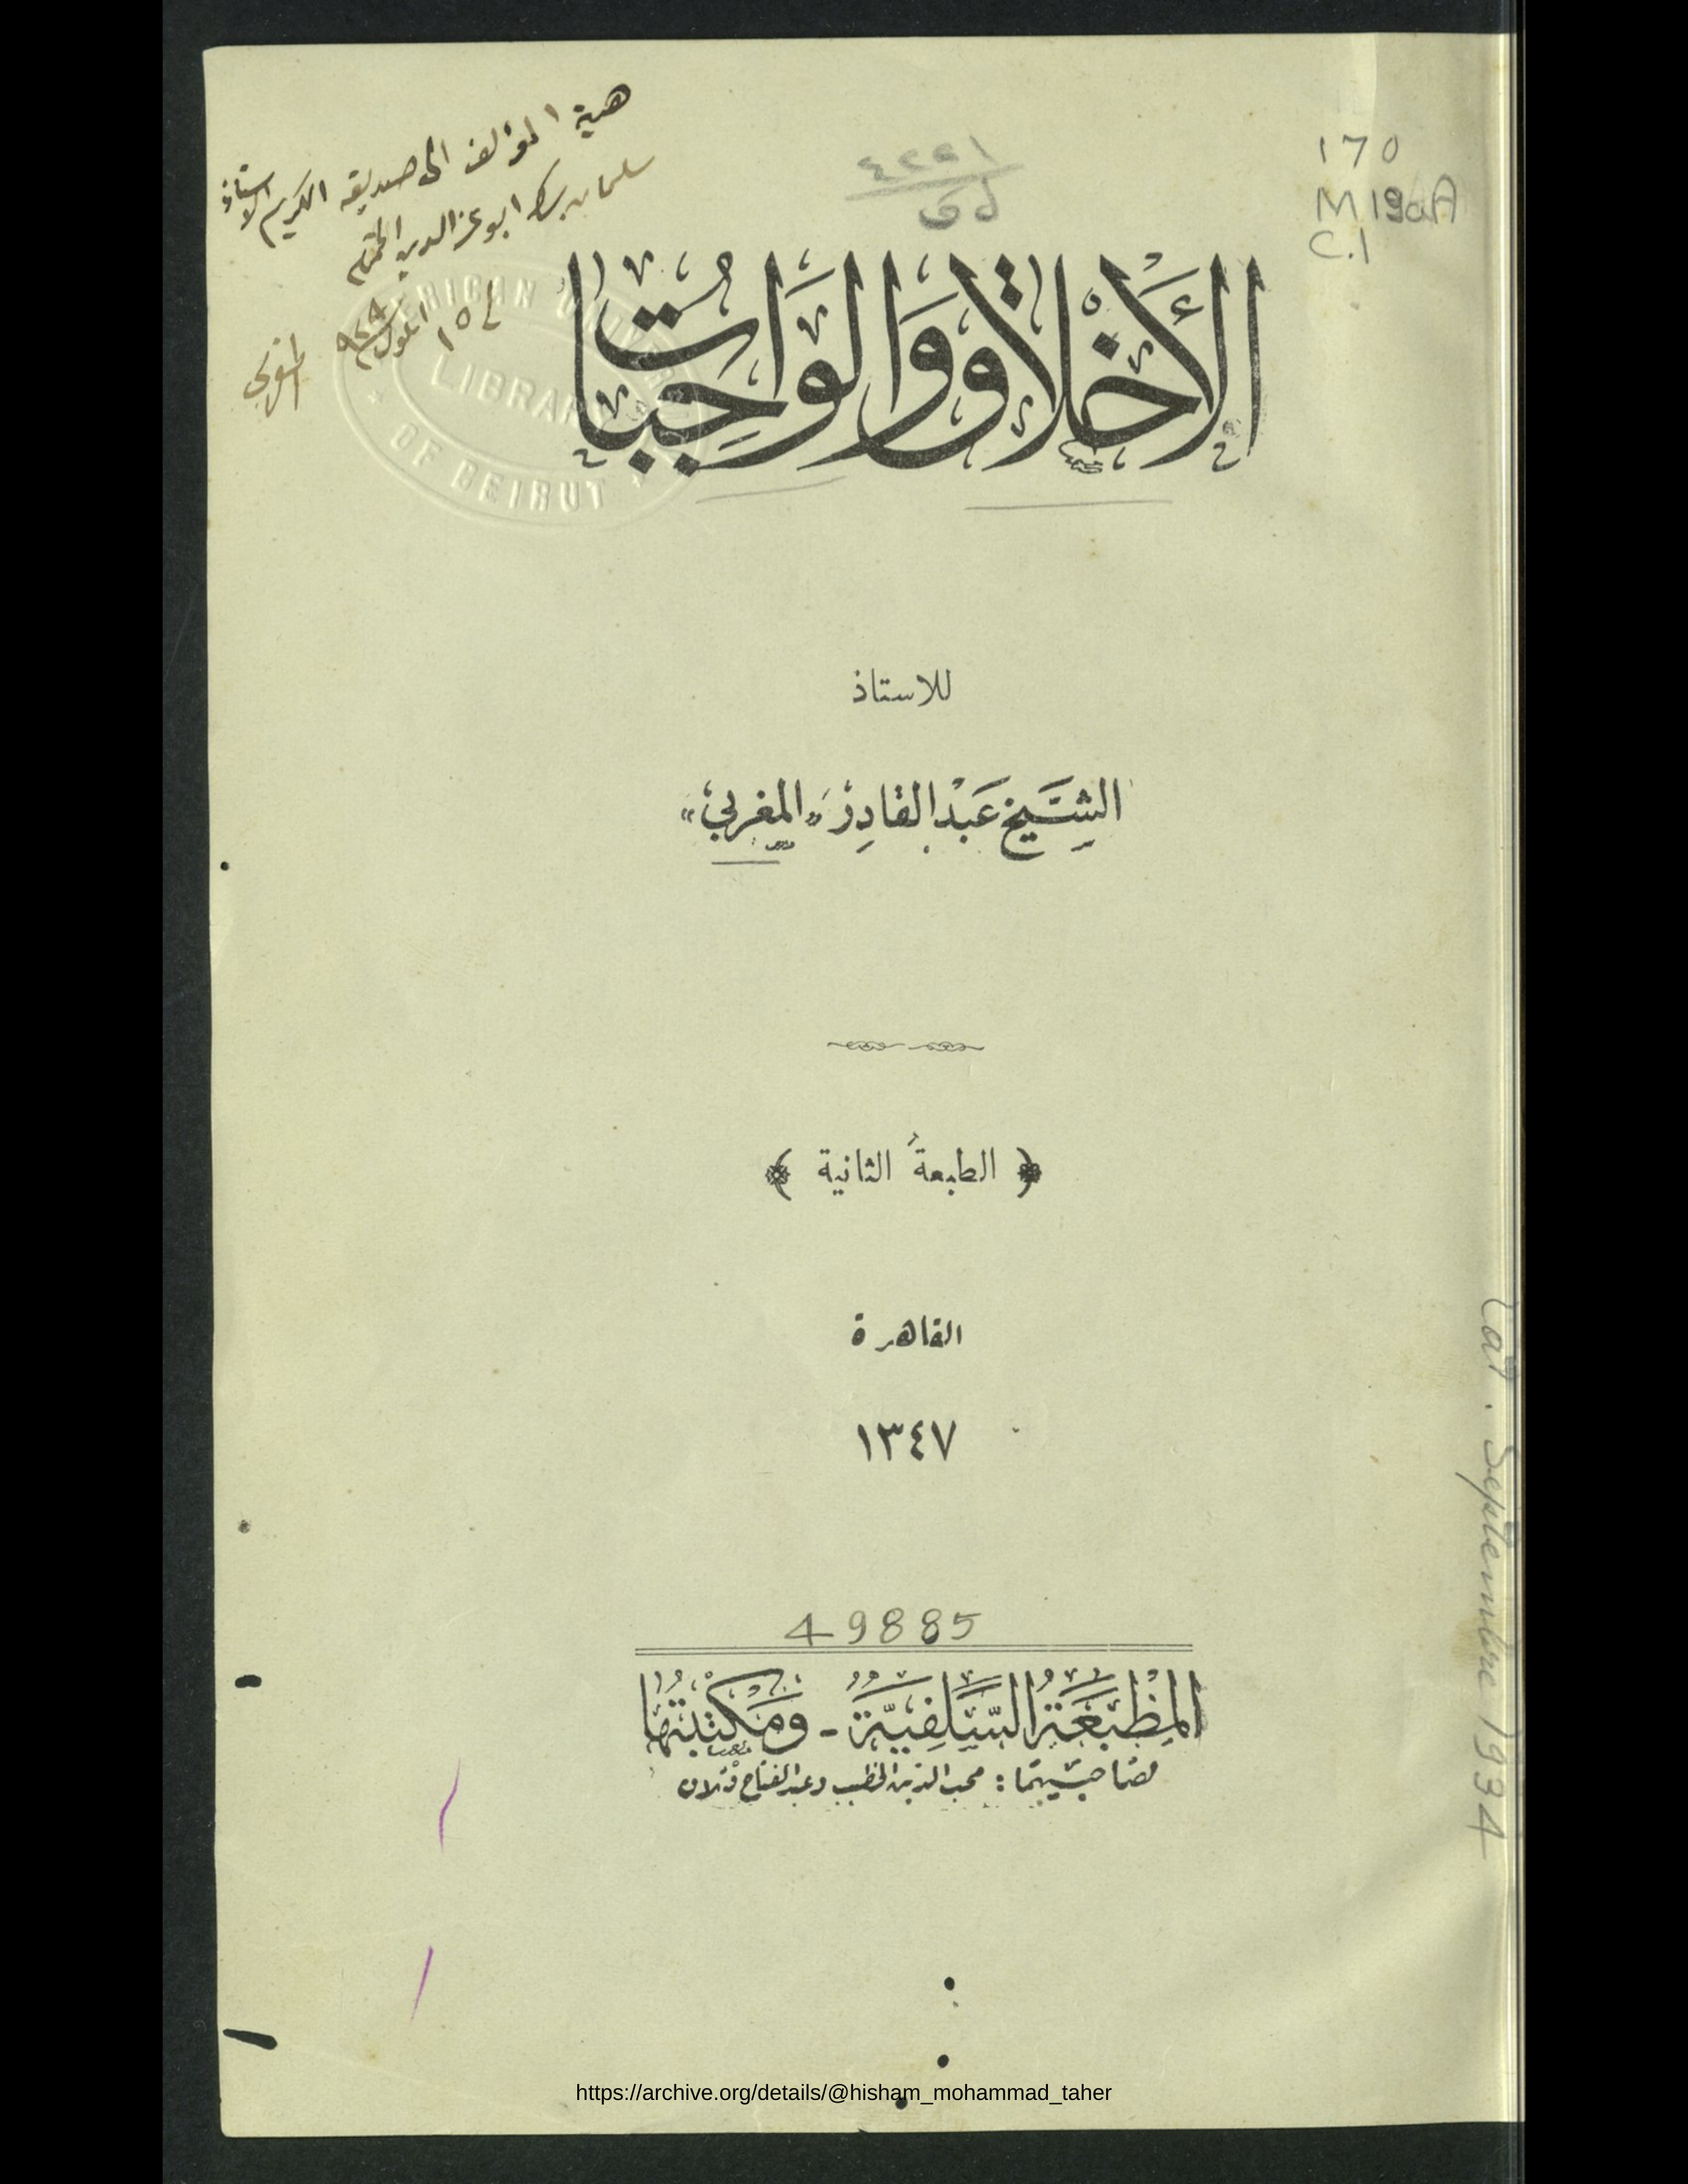 هدية المؤلف الى صديقه الكريم الاستاذ
سليمان بك ابو عز الدين المحترم
في ١٥ ايلول
المغربي
170
M19aA
C.1
AMERICAN UNIVERSITY
LIBRARY
OF BEIRUT
الأَخْلَاقُ وَالوَاجِبَاتُ
للاستاذ
الشَّيخ عَبْد القَادِر «المغربي»
﴿ الطبعة الثانية ﴾
القاهرة
١٣٤٧
49885
المَطْبَعَةُ السَّلَفِيَّةُ - وَمَكْتَبَتُهَا
لصاحبيهما: محب الدين الخطيب وعبد الفتاح قتلان
Cat. Septembre 1934
https://archive.org/details/@hisham_mohammad_taher